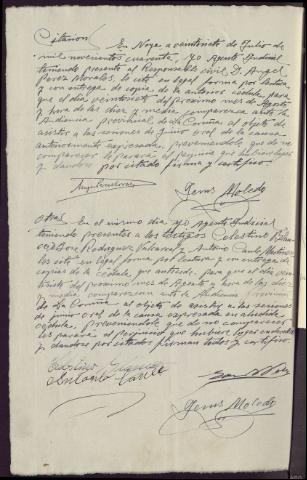 Citación
En Noya a veintisiete de Julio de
mil novecientos cuarenta, yo Agente Judicial
teniendo presente al Responsable civil, D. Angel
Perez Morales, le cité en legal forma por lectura
y con entrega de copia de la anterior cédula, para
que el día veintisiete del próximo mes de Agosto
y hora de las diez y media comparezca ante la
Audiencia provincial de La Coruña al objeto de
asistir a las sesiones de Juicio oral de la causa
anteriormente expresada, previniéndole que de no
comparecer le parará el perjuicio
y dándose por citado firma y certifico
Jesus Moledo
Otra
En el mismo día yo Agente Judicial
teniendo presentes a los testigos Celestino
José Rodriguez y Antonio Canle Martinez
les cité en legal forma por lectura y con entrega de
copias de la cédula que antecede para que el día
del próximo mes de Agosto y hora de las diez
y media comparezcan ante la Audiencia
de La Coruña al objeto de asistir a las sesiones
de juicio oral de la causa expresada en aludida
cédula, previniéndoles que de no comparecer
les parará el perjuicio que hubiere lugar
y dándose por citados firman todos y certifico
Antonio Canle
Jesus Moledo